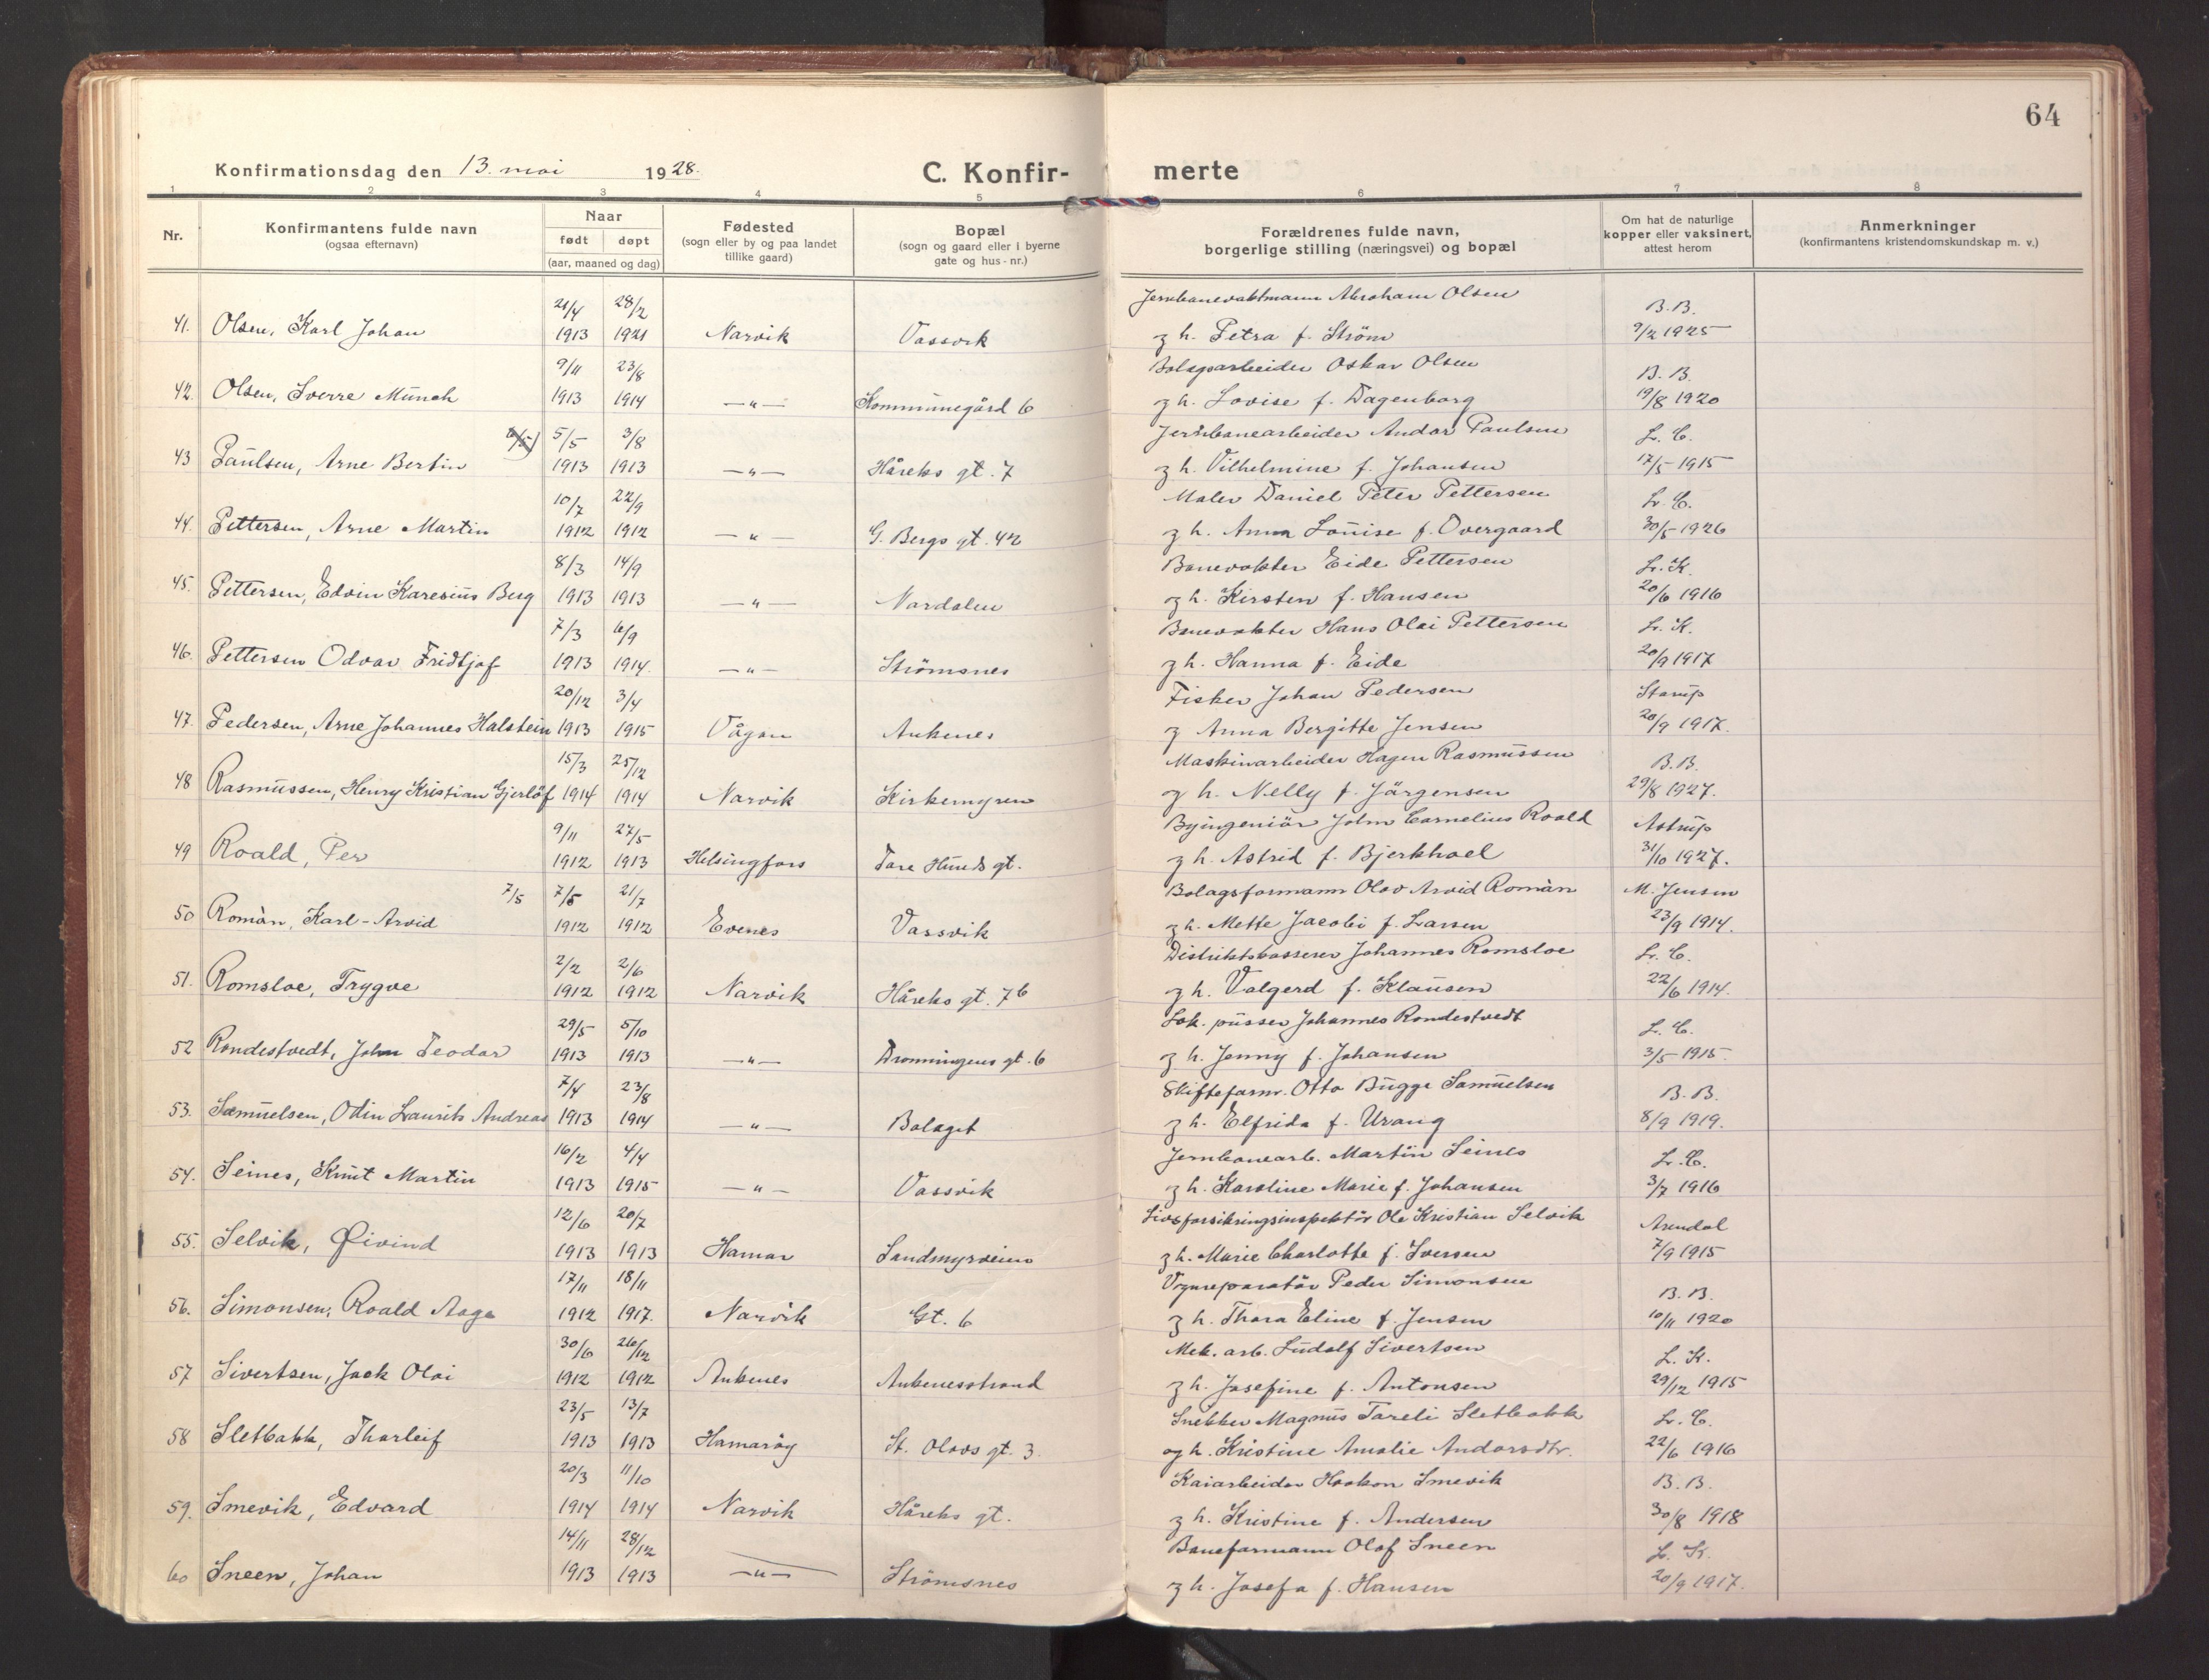 64
Konfirmationsdag den 13. mai 1928.
C. Konfir-
merte
1 2 3 4 5 6 7 8
Nr.
Konfirmantens fulde navn
(ogsaa efternavn)
Naar
født døpt
(aar, maaned og dag)
Fødested
(sogn eller by og paa landet
tillike gaard)
Bopæl
(sogn og gaard eller i byerne
gate og hus-nr.)
Forældrenes fulde navn,
borgerlige stilling (næringsvei) og bopæl
Om hat de naturlige
kopper eller vaksinert,
attest herom
Anmerkninger
(konfirmantens kristendomskundskap m. v.)
21/4 28/2 Jernbanevaktmann Abraham Olsen B.B.
41. Olsen, Karl Johan 1913 1921 Narvik Vassvik g h. Petra f. Strøm 9/2 1925
9/11 23/8 Bolagsarbeider Oskar Olsen B.B.
42. Olsen, Sverre Munch 1913 1914 —"— Kommunegård 6 g h. Lovise f. Dagenborg 19/8 1920
5/5 3/8 Jernbanearbeider Andor Paulsen L. C.
43 Paulsen, Arne Bertin 1913 1913 —"— Håreks gt. 7 g h. Vilhelmine f. Johansen 17/5 1915
10/7 22/9 Maler Daniel Peter Pettersen L. C.
44. Pettersen, Arne Martin 1912 1912 —"— G. Bergs gt. 42 g h. Anna Louise f. Overgaard 30/5 1926
8/3 14/9 Banevokter Eide Pettersen L. K.
45. Pettersen, Edvin Karesius Berg 1913 1913 —"— Nordalen g h. Kirsten f. Hansen 20/6 1916
7/3 6/9 Banevokter Hans Olai Pettersen L. K.
46. Pettersen Odvar Fridtjof 1913 1914. —"— Strömsnes g h. Hanna f. Eide 20/9 1917
20/12 3/4 Fisker Johan Pedersen Starup
47. Pedersen, Arne Johannes Halstein 1913 1915 Vågan Ankenes g Anna Bergitte Jensen 20/9 1917.
15/3 25/12 Maskinarbeider Hagen Rasmussen B.B.
48 Rasmussen, Henry Kristian Gjerlöf 1914 1914 Narvik Kirkemyren g h. Nelly f. Jörgensen 29/8 1927.
9/11 27/5 Byingeniör John Cornelius Roald Astrup
49 Roald, Per 1912 1913 Helsingfors Tore Hunds gt. g h. Astrid f. Bjerkhoel 31/10 1927.
7/5 7/5 21/7 Bolagsformann Olav Arvid Román M. Jensen
50 Román, Karl-Arvid 1912 1912 Evenes Vassvik g h. Mette Jacobi f. Larsen 23/9 1914.
2/2 2/6 Distriktskasserer Johannes Romsloe L. C.
51. Romsloe, Trygve 1912 1912 Narvik Håreks gt. 7b g h. Valgerd f. Klausen 22/6 1914.
29/5 5/10 Lok. pusser Johannes Rondestvedt L. C.
52 Rondestvedt, John Teodor 1913 1913 —"— Dronningens gt. 6 g h. Jenny f. Johansen 3/5 1915.
7/4 23/8 Skifteform. Otto Bugge Samuelsen B.B.
53. Samuelsen, Odin Laurits Andreas 1913 1914 —"— Bolaget g h. Elfrida f. Urang 8/9 1919.
16/2 4/4 Jernbanearb. Martin Seines L. C.
54. Seines, Knut Martin 1913 1915 —"— Vassvik g h. Karoline Marie f. Johansen 3/7 1916
12/6 20/7 Livsforsikringsinspektör Ole Kristian Selvik Arendal
55. Selvik, Øivind 1913 1913 Hamar Sandmyrveien g h. Marie Charlotte f. Iversen 7/9 1915
17/11 18/11 Vognreparatör Peder Simonsen B.B.
56. Simonsen, Roald Aage 1912 1917. Narvik Gt. 6 g h. Thora Eline f. Jensen 10/11 1920
30/6 26/12 Mek. arb. Ludolf Sivertsen L. K.
57 Sivertsen, Jack Olai 1912 1912 Ankenes Ankenesstrand g h. Josefine f. Antonsen 29/12 1915
23/5 13/7 Snekker Magnus Toreli Sletbakk L. C.
58 Sletbakk, Thorleif 1913 1913 Hamaröy St. Olavs gt. 3. og h. Kristine Amalie Andorsdtr. 22/6 1916
20/3 11/10 Kaiarbeider Haakon Smevik B.B.
59. Smevik, Edvard 1914 1914 Narvik Håreks gt. g h. Kristine f. Andersen 30/8 1918
14/11 28/12 Baneformann Olaf Sneen L. K.
60 Sneen, Johan 1913 1913 —"— Strömsnes g h. Josefa f. Hansen 20/9 1917.